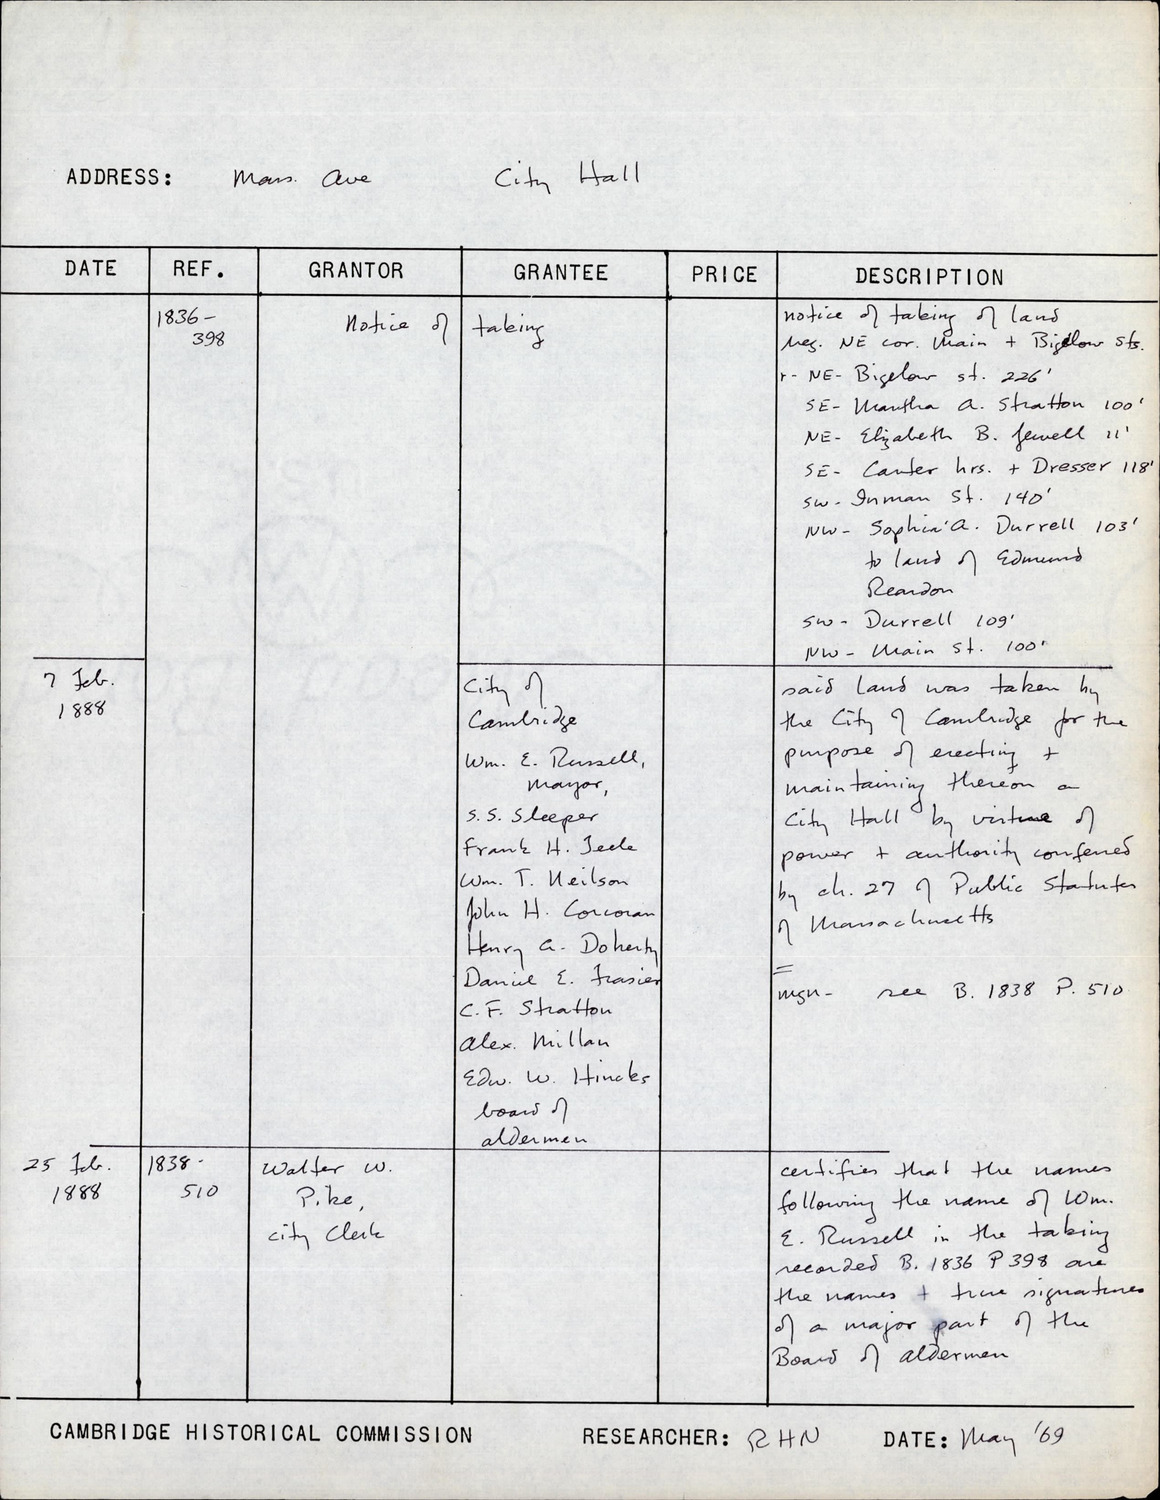 ADDRESS: Mass. Ave City Hall
DATE REF. GRANTOR GRANTEE PRICE DESCRIPTION
1836-
398
Notice of taking
notice of taking of land
beg. NE cor. Main + Bigelow Sts.
r- NE- Bigelow st. 226'
SE- Martha A. Stratton 100'
NE- Elizabeth B. Jewell 11'
SE- Carter hrs. + Dresser 118'
SW- Inman St. 140'
NW- Sophia A. Durrell 103'
to land of Edmund
Reardon
SW- Durrell 109'
NW- Main St. 100'
7 Feb.
1888
City of
Cambridge
Wm. E. Russell,
Mayor,
S. S. Sleeper
Frank H. Teele
Wm. T. Neilson
John H. Corcoran
Henry A. Doherty
Daniel E. Frasier
C. F. Stratton
Alex. Millan
Edw. W. Hincks
board of
aldermen
said land was taken by
the City of Cambridge for the
purpose of erecting +
maintaining thereon a
City Hall by virtue of
power + authority conferred
by ch. 27 of Public Statutes
of Massachusetts
=
mgn- see B. 1838 P. 510
25 Feb.
1888
1838-
510
Walter W.
Pike,
city Clerk
certifies that the names
following the name of Wm.
E. Russell in the taking
recorded B. 1836 P 398 are
the names + true signatures
of a major part of the
Board of aldermen
CAMBRIDGE HISTORICAL COMMISSION RESEARCHER: RHN DATE: May '69